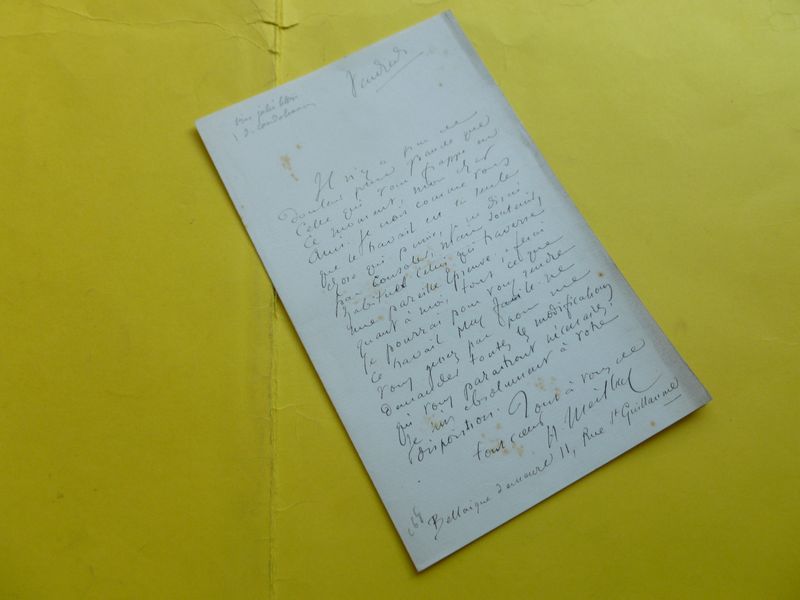 Vendredi
très jolie lettre
de condoléances
Il n'y a pas de
douleur plus grande que
celle qui vous frappe en
ce moment, mon cher
ami. Je crois comme vous
que le travail est la seule
chose qui puisse, je ne dirai
pas consoler, mais soutenir,
habituel celui qui traverse
une pareille épreuve. Je ferai
quant à moi, tout ce que
je pourrai pour vous rendre
ce travail plus facile. Ne
vous gênez pas pour me
demander toutes les modifications
qui vous paraîtront nécessaires.
Je suis absolument à votre
disposition. Tout à vous de
tout cœur
H. Meilhac
Bellaigue demeure 11, Rue St Guillaume